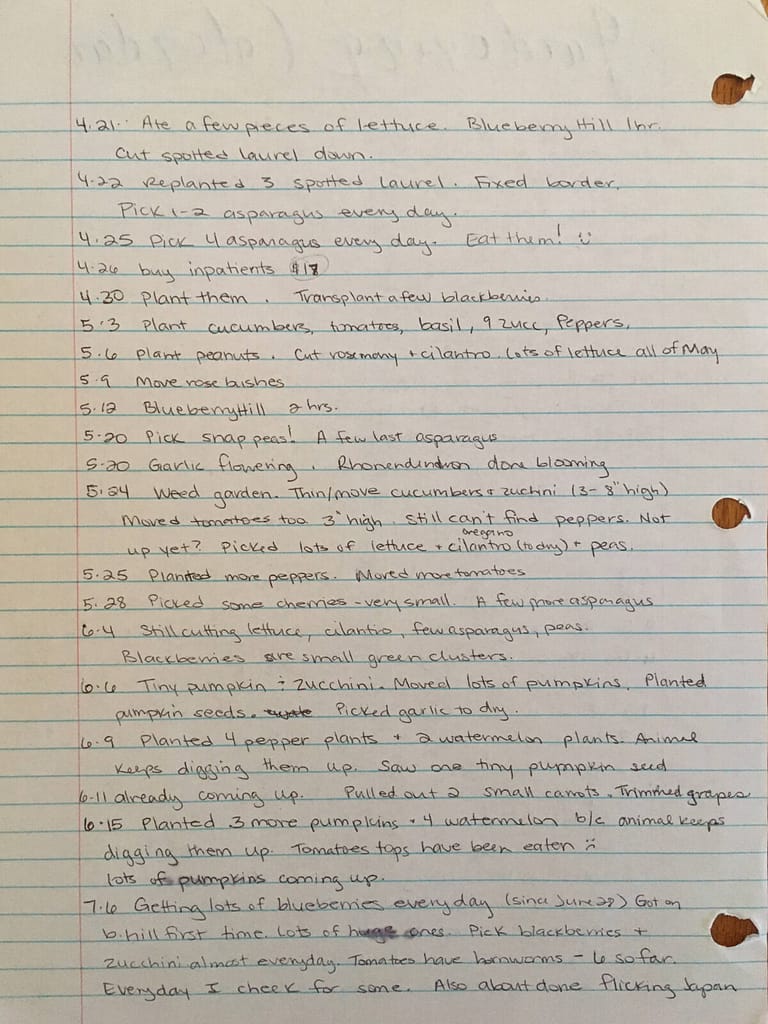 4.21.. Ate a few pieces of lettuce. Blueberry Hill 1hr.
Cut spotted laurel down.
4.22 Replanted 3 spotted laurel. Fixed border.
Pick 1-2 asparagus every day.
4.25 Pick 4 asparagus every day. Eat them! :)
4.26 buy inpatients $18
4.30 Plant them. Transplant a few blackberries.
5.3 Plant cucumbers, tomatoes, basil, 9 zucc, Peppers.
5.6 Plant peanuts. Cut rosemony + cilantro. lots of lettuce all of May
5.9 Move rose bushes
5.12 Blueberry Hill 2 hrs.
5.20 Pick snap peas! A few last asparagus
5.20 Garlic flowering. Rhonendundron done blooming
5.24 Weed garden. Thin/move cucumbers + zuchini (3-8" high)
Moved tomatoes too 3" high. Still can't find peppers. Not
oregano
up yet? Picked lots of lettuce + cilantro (to dry) + peas.
5.25 Planted more peppers. Moved more tomatoes
5.28 Picked some cherries - very small. A few more asparagus
6.4 Still cutting lettuce, cilantro, few asparagus, peas.
Blackberries are small green clusters.
6.6 Tiny pumpkin + zucchini. Moved lots of pumpkins. Planted
pumpkin seeds. Picked garlic to dry.
6.9 Planted 4 pepper plants + 2 watermelon plants. Animal
keeps digging them up. Saw one tiny pumpkin seed
6.11 already coming up. Pulled out 2 small carrots. Trimmed grapes
6.15 Planted 3 more pumpkins + 4 watermelon b/c animal keeps
digging them up. Tomatoes tops have been eaten :(
lots of pumpkins coming up.
7.6 Getting lots of blueberries everyday (since June 28) Got on
b. hill first time. Lots of huge ones. Pick blackberries +
zucchini almost everyday. Tomatoes have hornworms - 6 so far.
Everyday I check for some. Also about done flicking Japan